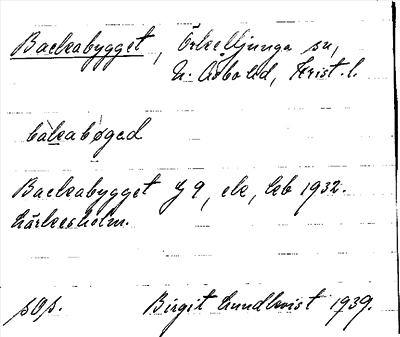 Backabygget, Örkelljunga sn,
N. Åsbo hd, Krist. l.
bàkabøged
Backabygget J 9, ek, kb 1932.
Kärkesholm.
sOs. Birgit Lundkvist 1939.